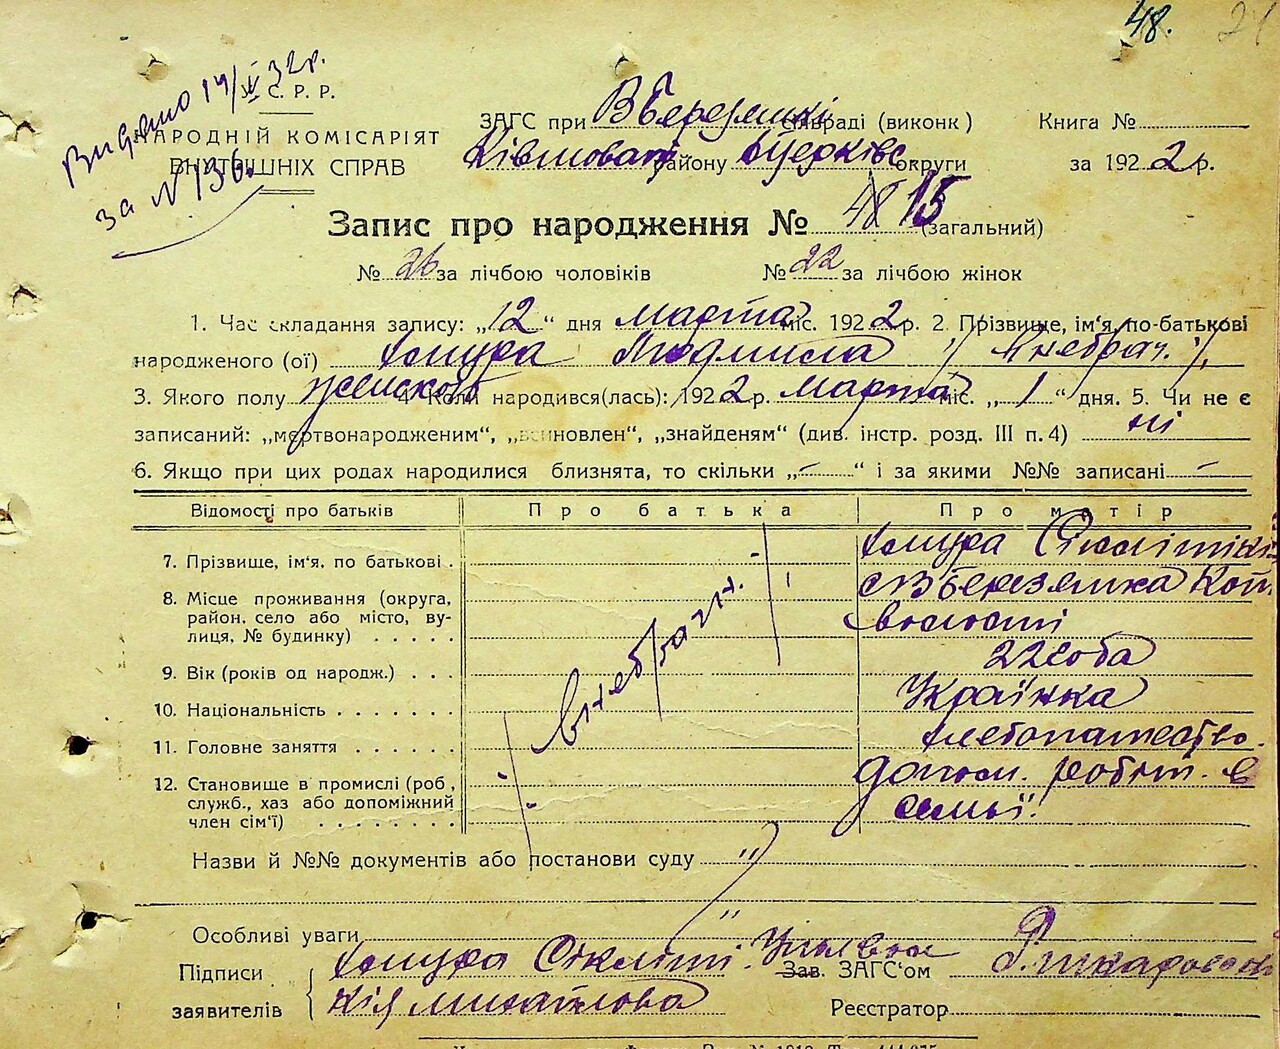 48. 24
Видано 14/V 32р.
за N 136
У. С. Р. Р.
НАРОДНІЙ КОМІСАРІЯТ
ВНУТРІШНІХ СПРАВ
ЗАГС при ВБереземкі сільраді (виконк) Книга №
району округи за 1922 р.
Запис про народження № 48 15 (загальний)
№ 26 за лічбою чоловіків № 22 за лічбою жінок
1. Час складання запису: „12“ дня марта міс. 1922 р. 2. Прізвище, ім'я, по-батькові
народженого (ої) Хмура Людмила /внебрач./
3. Якого полу женского 4. Коли народився(лась): 1922 р. марта міс. „1“ дня. 5. Чи не є
записаний: „мертвонародженим“, „всиновлен“, „знайденям“ (див. інстр. розд. III п. 4) ні
6. Якщо при цих родах народилися близнята, то скільки „-“ і за якими №№ записані -
Відомості про батьків Про батька Про матір
7. Прізвище, ім'я, по батькові . Хмура
8. Місце проживання (округа, район, село або місто, вулиця, № будинку) . . . . .
волости
9. Вік (років од народж.) . . . 22 года
10. Національність . . . . . . . Українка
11. Головне заняття . . . . . . хлебопашество.
12. Становище в промислі (роб., служб., хаз або допоміжний член сім'ї) . . . . . . . допом. робіт. в семьї.
внебрачн.
Назви й №№ документів або постанови суду "
"
Особливі уваги
Підписи Хмура Зав. ЗАГС'ом
заявителів Михайлова Реєстратор